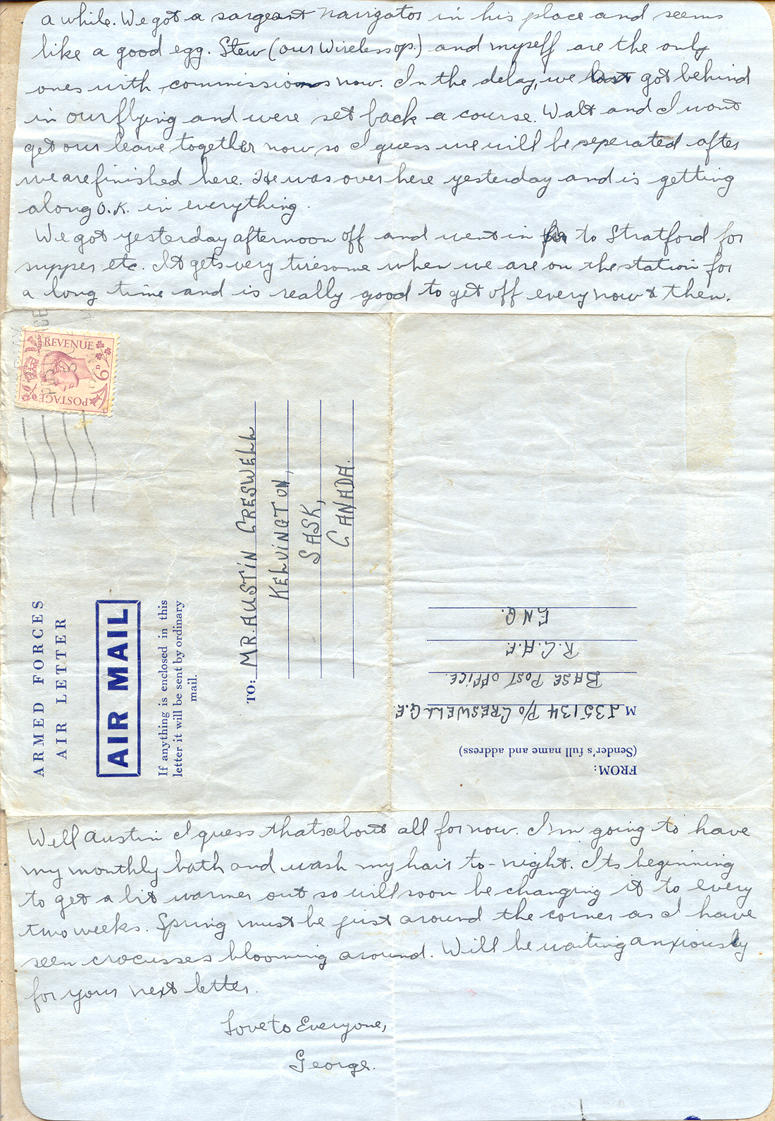 a while. We got a sargeant navigator in his place and seems
like a good egg. Stew (our Wirelessop.) and myself are the only
ones with commissions now. In the delay, we got behind
in our flying and were set back a course. Walt and I wont
get our leave together now so I guess we will be seperated after
we are finished here. He was over here yesterday and is getting
along O.K. in everything.
We got yesterday afternoon off and went in to Stratford for
supper etc. It gets very tiresome when we are on the station for
a long time and is really good to get off every now & then.
REVENUE
6D
POSTAGE
ARMED FORCES
AIR LETTER
AIR MAIL
If anything is enclosed in this
letter it will be sent by ordinary
mail.
TO: MR. AUSTIN CRESWELL
KELVINGTON,
SASK,
CANADA.
FROM:
(Sender's full name and address)
M J35134 P/O CRESWELL G.E.
BASE POST OFFICE.
R.C.A.F.
ENG.
Well Austin I guess thats about all for now. I'm going to have
my monthly bath and wash my hair to-night. Its beginning
to get a bit warmer out so will soon be changing it to every
two weeks. Spring must be just around the corner as I have
seen crocusses blooming around. Will be waiting anxiously
for your next letter.
Love to Everyone,
George.